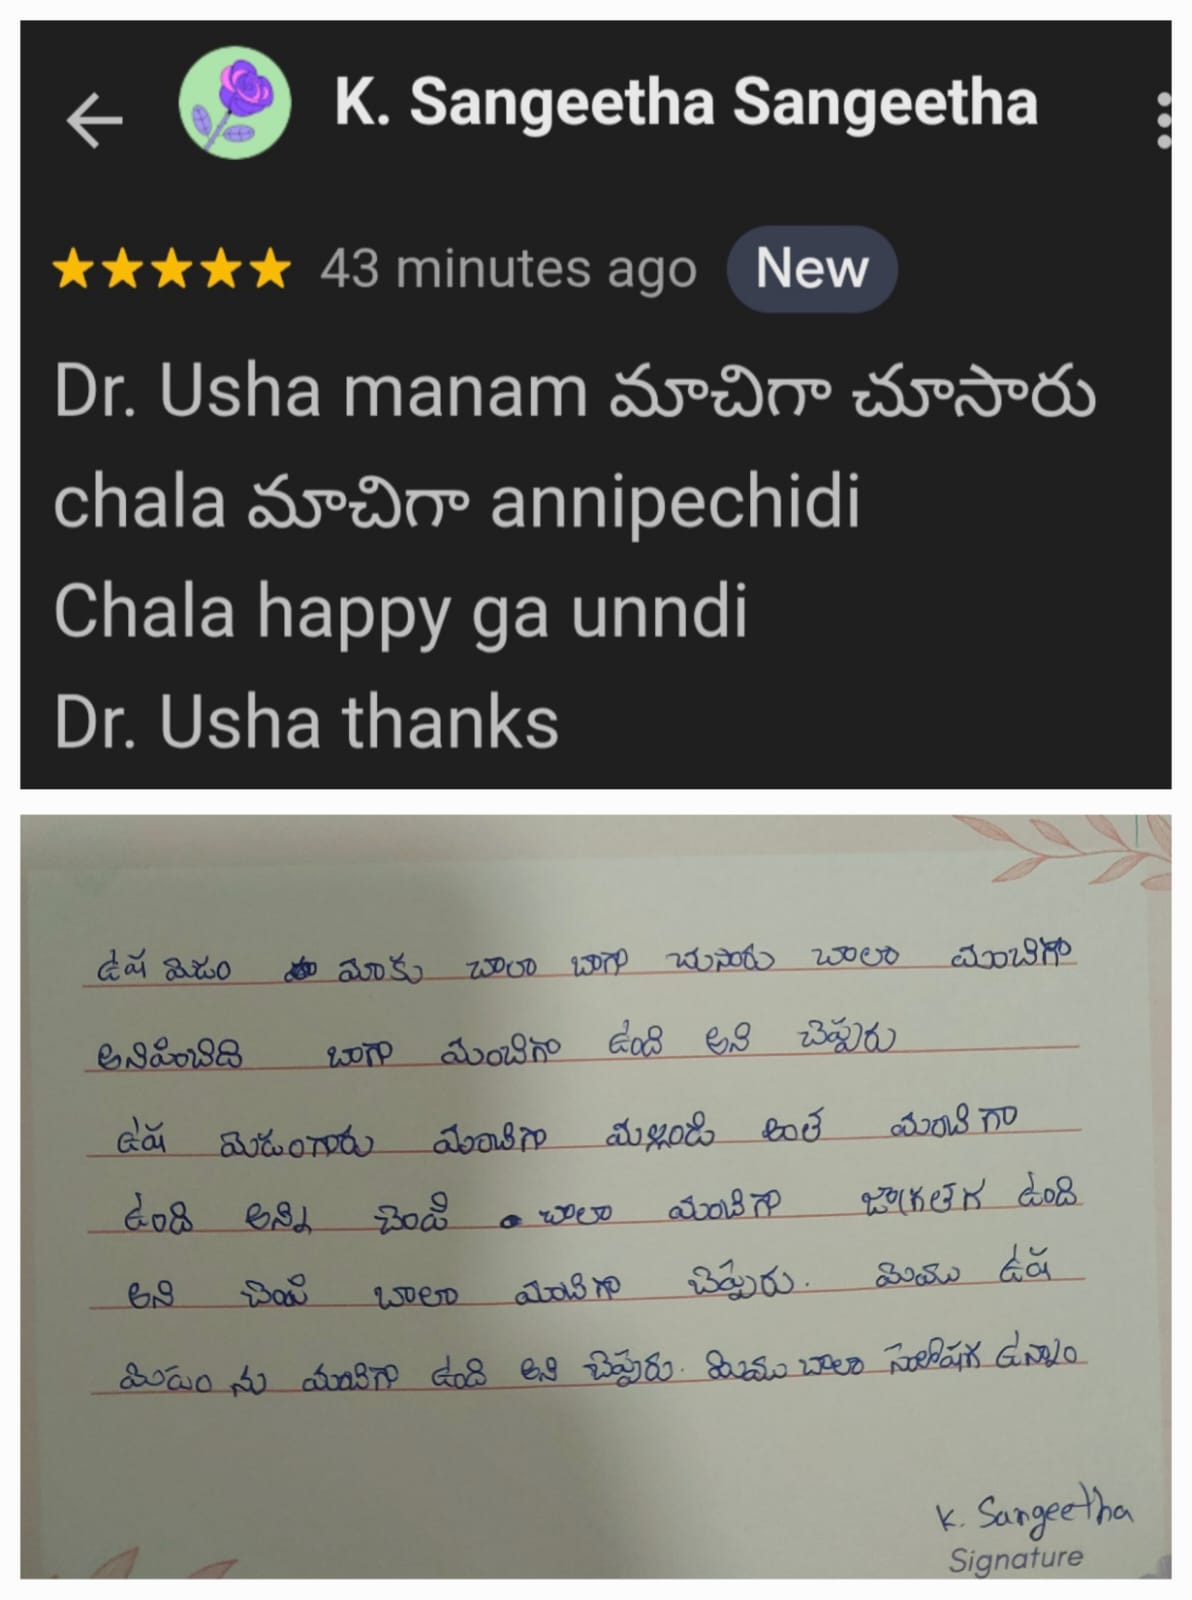 K. Sangeetha Sangeetha
43 minutes ago New
Dr. Usha manam మాచిగా చూసారు
chala మాచిగా annipechidi
Chala happy ga unndi
Dr. Usha thanks
ఉష మెడం మాకు చాలా బాగా చుసారు చాలా మంచిగా
అనిపించిది బాగా మంచిగా ఉంది అని చెప్పురు
ఉష మెడంగారు మంచిగా అంత మంచిగా
ఉంది అన్ని చెంపి చాలా మంచిగా జాగ్రతగ ఉంది
అని చెంపి చాలా మంచిగా చెప్పురు. మెము ఉష
మెడం ను మంచిగా ఉంది అని చెప్పురు. మెము చాలా ఉన్నాం
K. Sangeetha
Signature